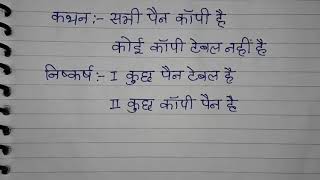 कथन :- सभी पैन कॉपी है
कोई कॉपी टेबल नहीं है
निष्कर्ष :- I कुछ पैन टेबल है
II कुछ कॉपी पैन है